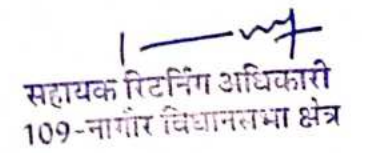 सहायक रिटर्निंग अधिकारी
109-नागौर विधानसभा क्षेत्र